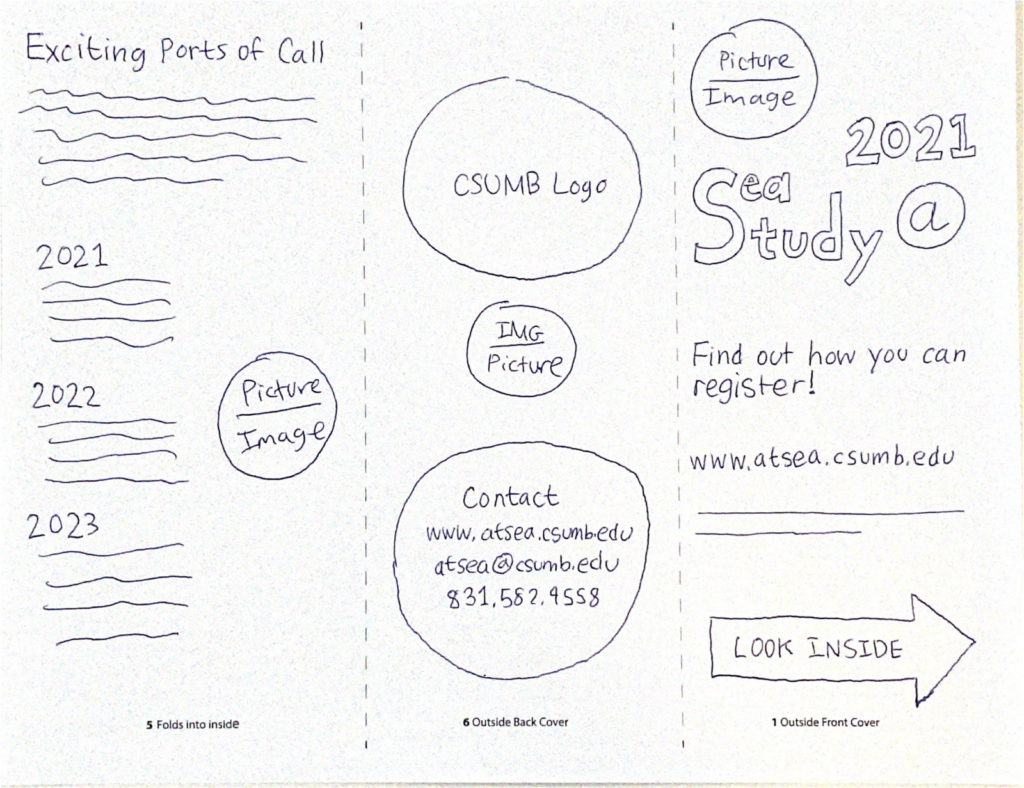 Exciting Ports of Call
2021
2022
Picture
Image
2023
5 Folds into inside
CSUMB Logo
IMG
Picture
Contact
www.atsea.csumb.edu
atsea@csumb.edu
831.582.4558
6 Outside Back Cover
Picture
Image
2021
Sea
Study @
Find out how you can
register!
www.atsea.csumb.edu
LOOK INSIDE
1 Outside Front Cover